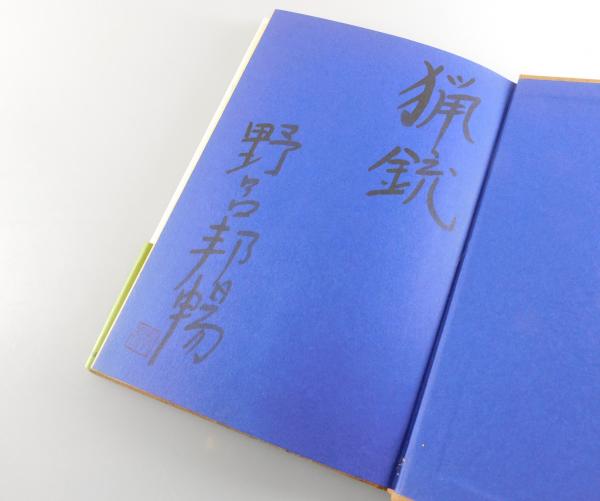 猟銃
野呂邦暢